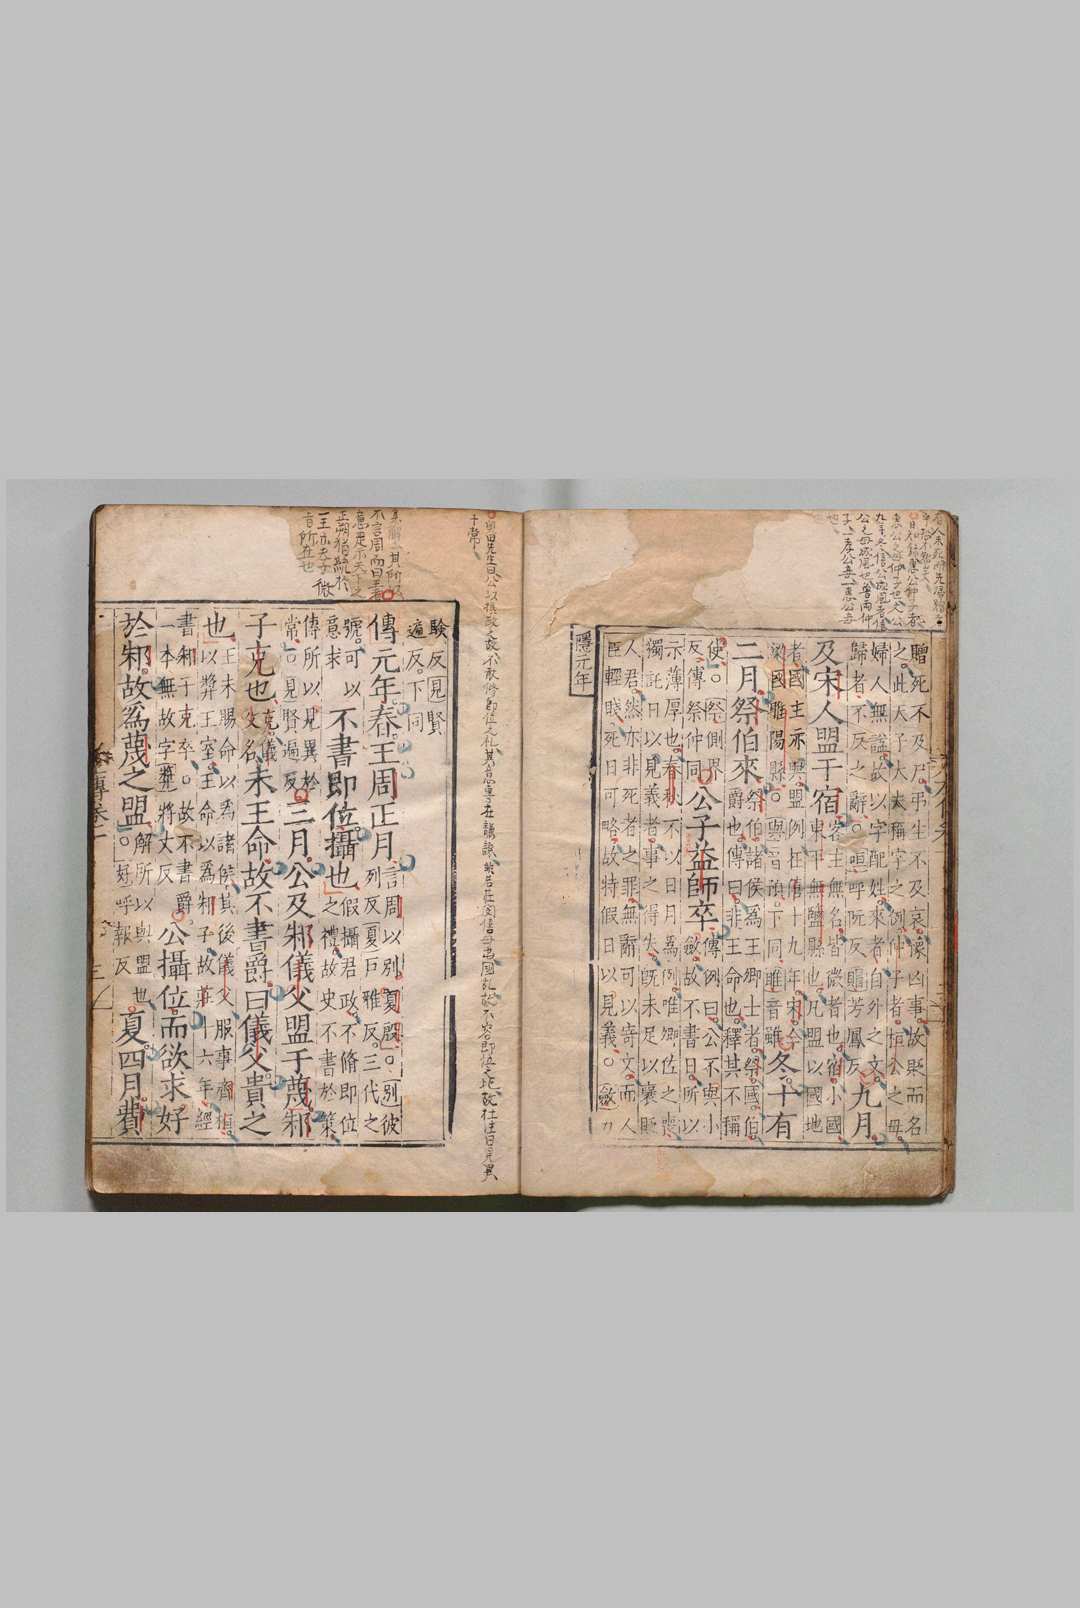 贈死不及尸弔生不及哀豫凶事故貶而名
之此天子大夫稱字之例仲子者桓公之母
婦人無謚故以字配姓來者自外之文
歸者不反之辭○咺呼阮反賵芳鳳反
九月
及宋人盟于宿
客主無名皆微者也宿小國
東平無鹽縣也凡盟以國地
者國主亦與盟例在僖十九年宋今
梁國睢陽縣○與音預下同睢音雖
冬十有
二月祭伯來
祭伯諸侯為王卿士者祭國伯
爵也傳曰非王命也釋其不稱
使○祭側界
反傳祭仲同
公子益師卒
傳例曰公不與小
斂故不書日所以
示薄厚也春秋不以日月為例唯卿佐之喪
獨託日以見義者事之得失旣未足以襃貶
人君然亦非死者之罪無辭可以寄文而人
臣輕賤死日可略故特假日以見義○斂力
隱元年
驗反見賢
遍反下同
傳元年春王周正月
言周以別夏殷○別彼
列反夏戶雅反三代之
號可以
意求
不書即位攝也
假攝君政不脩即位
之禮故史不書於策
傳所以見異於
常○見賢遍反
三月公及邾儀父盟于蔑邾
子克也
克儀
父名
未王命故不書爵曰儀父貴之
也
王未賜命以為諸侯其後儀父服事齊桓
以獎王室王命以為邾子故莊十六年經
書邾子克卒○故不書爵
一本無故字獎將丈反
公攝位而欲求好
於邾故為蔑之盟
解所以與盟也
○好呼報反
夏四月費
傳卷一
三
其所以
不言周而曰
意是示天下之
正朔猶統於
一王亦夫子微
旨所在也